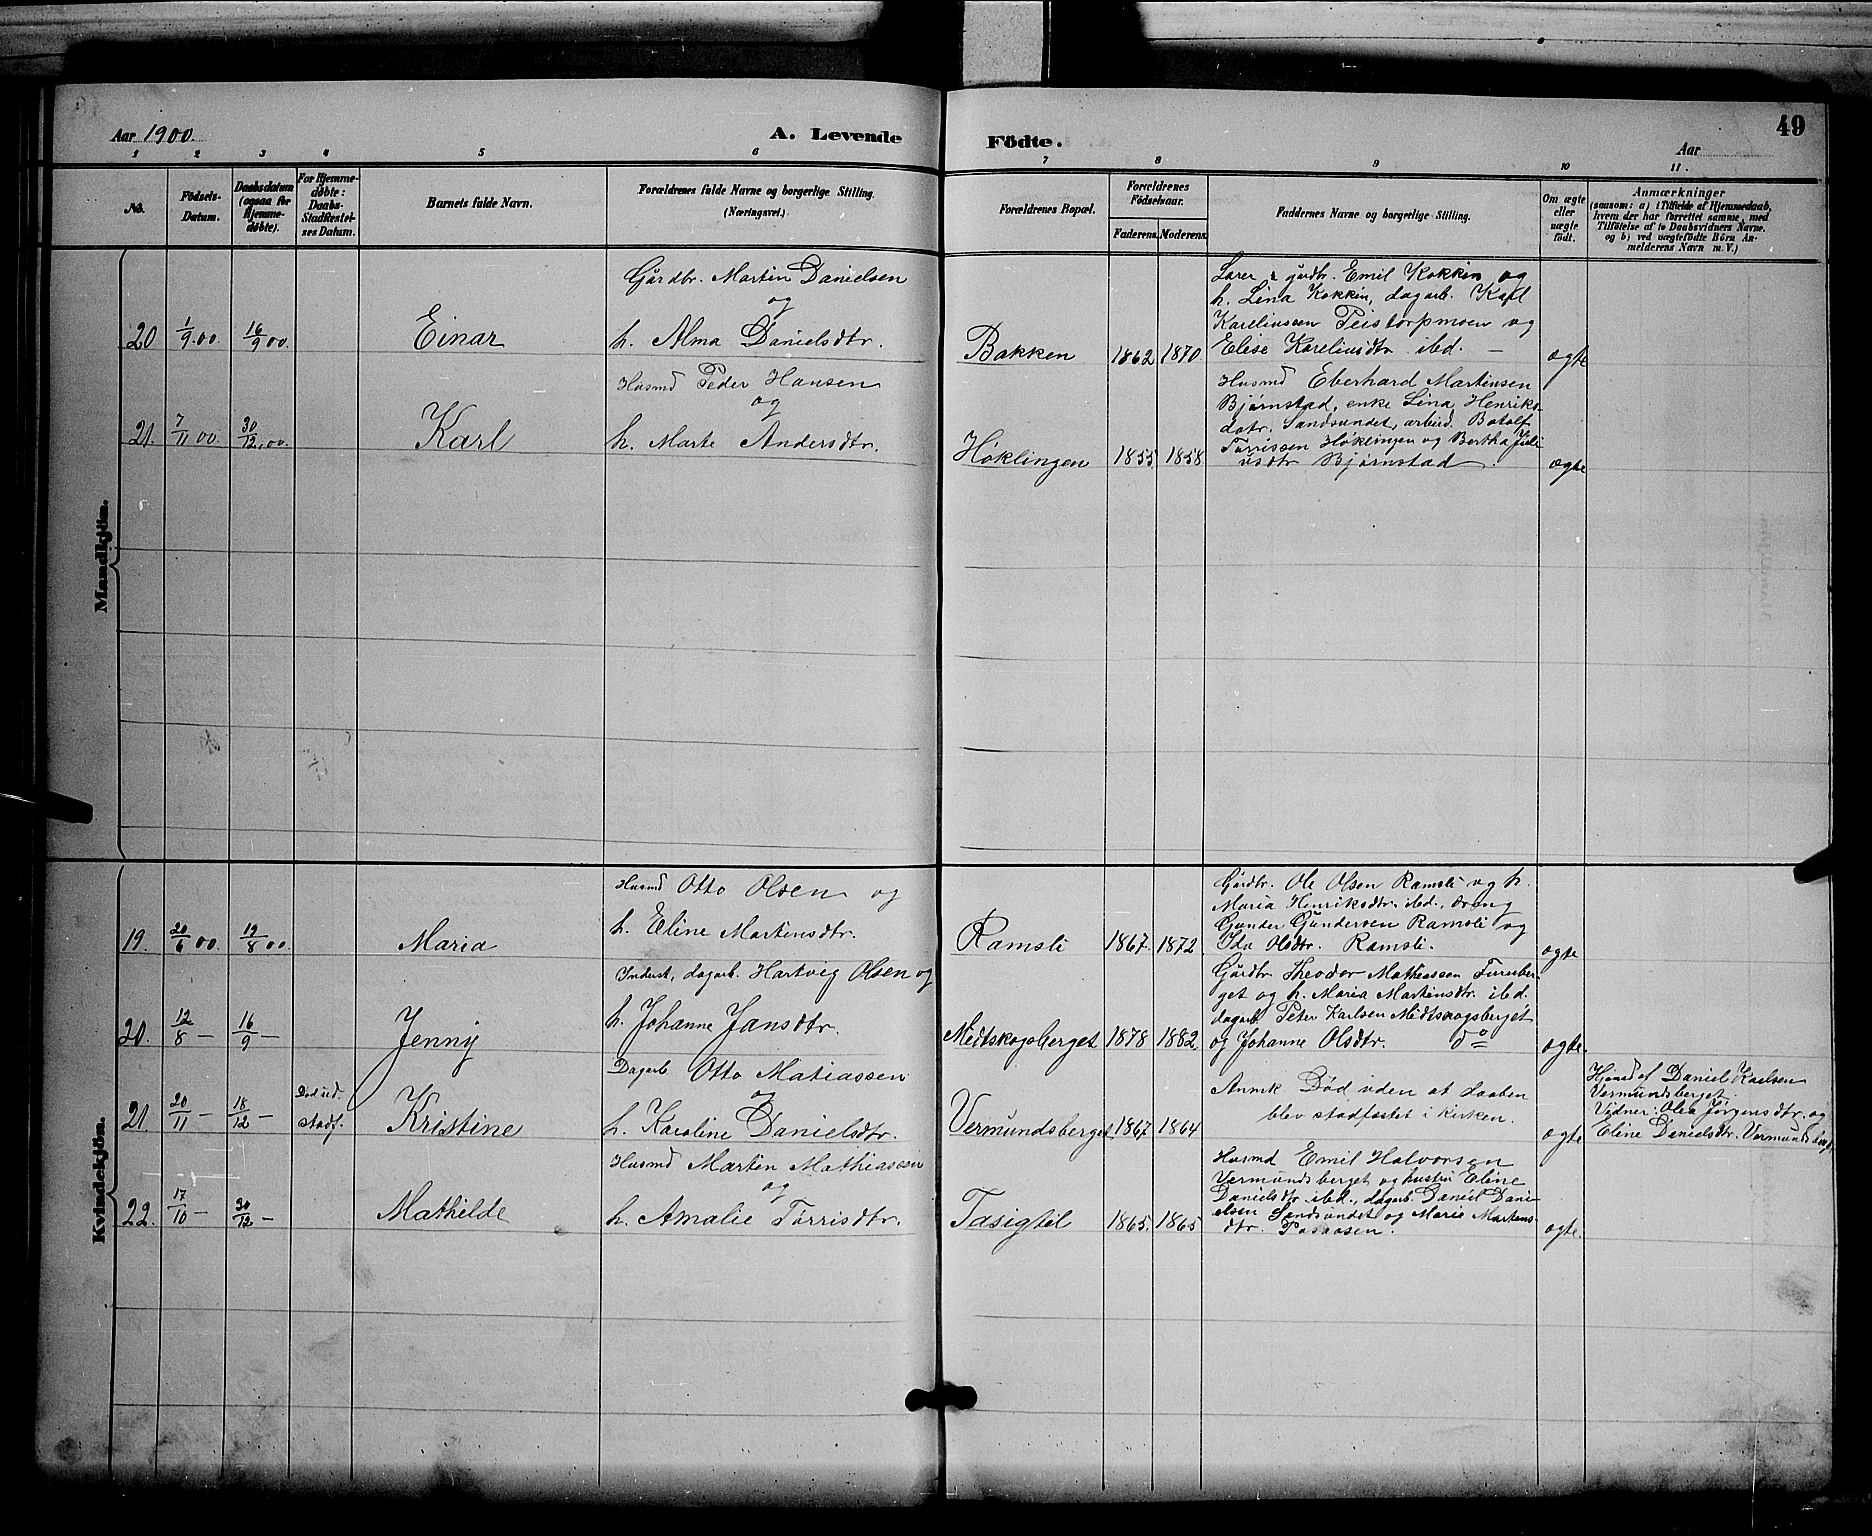 49
Aar 1900.
A. Levende
Födte.
Aar
1 2 3 4 5 6 7 8 9 10 11.
No.
Födsels-
Datum.
Daabsdatum
(ogsaa for
Hjemme-
døbte).
For Hjemme-
døbte:
Daabs-
Stadfæstel-
ses Datum.
Barnets fulde Navn.
Forældrenes fulde Navne og borgerlige Stilling.
(Næringsvei.)
Forældrenes Bopæl.
Forældrenes
Födselsaar.
Faderens. Moderens.
Faddernes Navne og borgerlige Stilling.
Om ægte
eller
uægte
födt.
Anmærkninger
(saasom: a) i Tilfælde af Hjemmedaab,
hvem der har forrettet samme, med
Tilföielse af to Daabsvidners Navne.
og b) ved uægtefödte Börn An-
melderens Navn m. V.)
Mandkjön.
20 1/9.00. 16/9 00. Einar
Gårdbr. Martin Danielsen
og
h. Alma Danielsdtr.
Bakken 1862 1870
Lærer & gårdbr. Emil Kokkin og
h. Lina Kokkin, dagarb. Karl
Kareliussen Peistorpmoen og
Elise Kareliusdtr ibd. —
ægte
21. 7/11 00. 30/12.00. Karl
Husmd Peder Hansen
og
h. Marte Andersdtr.
Høklingen 1855 1858
Husmd Eberhard Martinsen
Bjørnstad, enke Lina Henriks-
datr. Sandsundet, arbeid. Botolf
Tørrissen Høklingen og Bertha Juli
usdtr Bjørnstad.
ægte
Kvindekjön.
19. 20/6 00. 19/8 00. Maria
Husmd Otto Olsen og
h. Eline Martinsdtr.
Ramsli 1867. 1872
Gårdbr. Ole Olsen Ramsli og h.
Maria Henriksdtr. ibd., dreng
Gunder Gundersen Ramsli og
Ida Olsdtr. Ramsli.
ægte
20. 12/8 — 16/9 — Jenny
Inderst, dagarb. Hartvig Olsen og
h. Johanne Jansdtr.
Medtskogsberget 1878 1882
Gårdbr Theodor Mathiassen Furuber-
get og h. Maria Martinsdtr. ibd.
dagarb. Peter Karlsen Medtskogsberget
og Johanne Olsdtr. do =
ægte.
21. 20/11 — 18/12 — Død ud.
stadf. Kristine
Dagarb. Otto Matiassen
og
h. Karoline Danielsdtr.
Vermundsberget 1867. 1864
Anmk Død uden at daaben
blev stadfæstet i kirken.
ægte
Hjmed af Daniel Karlsen
Vermundsberget.
Vidner: Olea Jørgensdtr. og
Eline Danielsdtr. Vermundsberg
22. 17/10 — 30/12 — Mathilde
Husmd Martin Mathiassen
og
h. Amalie Tørrisdtr.
1865. 1865
Husmd Emil Halvorsen
Vermundsberget og hustru Eline
Danielsdtr ibd., dagarb. Daniel Dani-
elsen Sandsundet og Marie Martins-
dtr.
ægte.